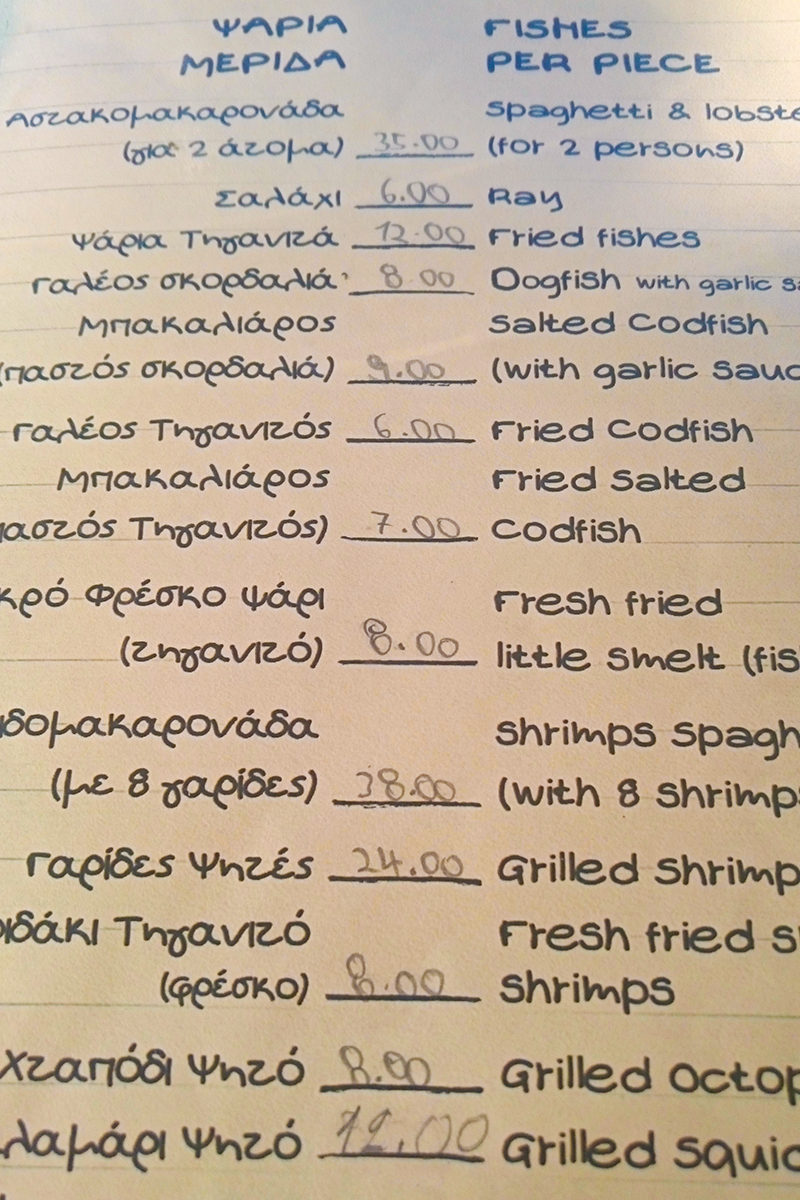 ΨΑΡΙΑ FISHES
ΜΕΡΙΔΑ PER PIECE
Αστακομακαρονάδα Spaghetti & lobste
(για 2 άτομα) 35.00 (for 2 persons)
Σαλάχι 6.00 Ray
Ψάρια Τηγανιτά 12.00 Fried fishes
Γαλέος σκορδαλιά 8.00 Dogfish with garlic sa
Μπακαλιάρος Salted Codfish
(παστός σκορδαλιά) 9.00 (with garlic sauc
Γαλέος Τηγανιτός 6.00 Fried Codfish
Μπακαλιάρος Fried Salted
αστός Τηγανιτός) 7.00 Codfish
κρό Φρέσκο Ψάρι Fresh fried
(τηγανιτό) 8.00 little smelt (fis
ιδομακαρονάδα Shrimps Spagh
(με 8 γαρίδες) 38.00 (with 8 shrimps
Γαρίδες Ψητές 24.00 Grilled Shrimp
ιδάκι Τηγανιτό Fresh fried s
(φρέσκο) 8.00 shrimps
Χταπόδι Ψητό 8.00 Grilled Octop
λαμάρι Ψητό 12.00 Grilled Squid